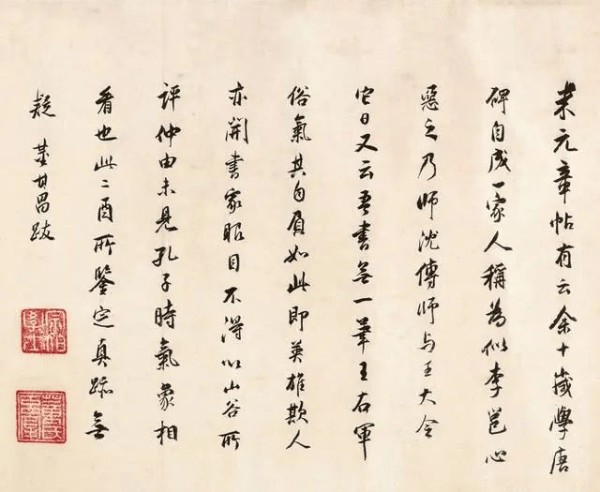 米元章帖有云余十歲學唐
碑自成一家人稱為似李邕心
惡之乃師沈傳師与王大令
它日又云吾書無一筆王右軍
俗氣其自負如此即英雄欺人
亦開書家眼目不得以山谷所
評仲由未見孔子時氣象相
看也此二酉所鑒定真跡無
疑 董其昌跋
宗伯學士
董氏玄宰